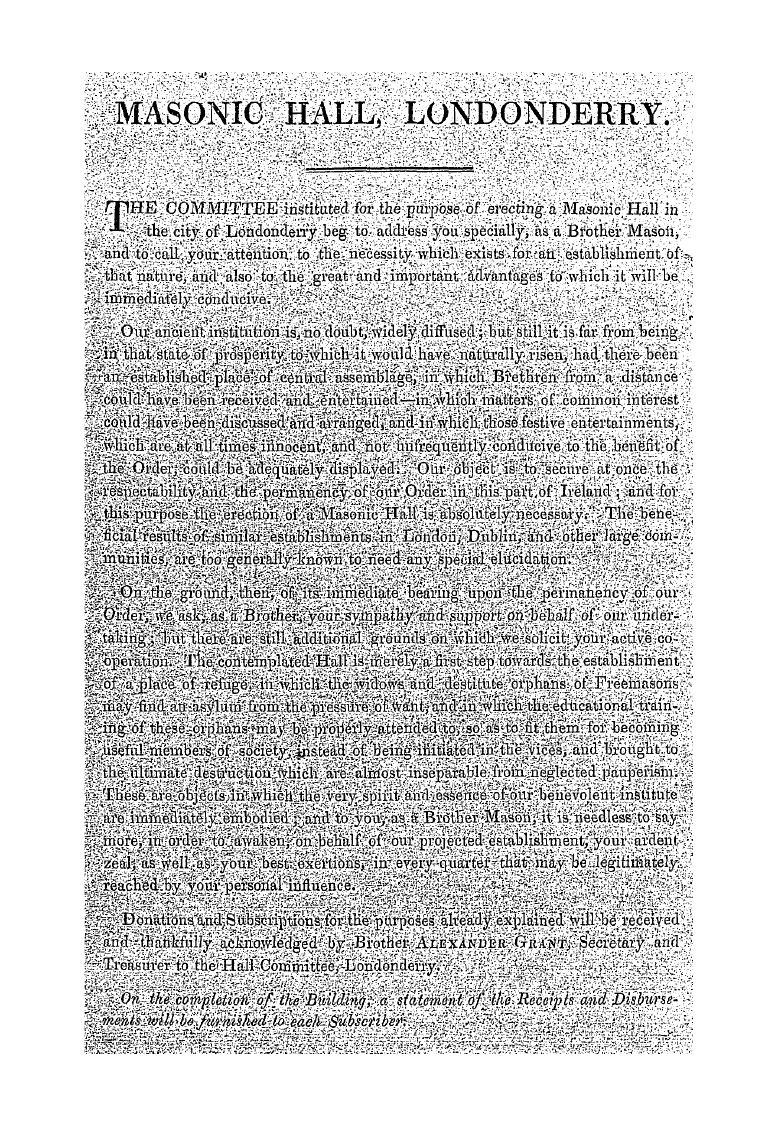 MASONIC HALL, LONDONDERRY.
THE COMMITTEE instituted for the purpose of erecting a Masonic Hall in
the city of Londonderry beg to address you specially, as a Brother Mason,
and to call your attention to the necessity which exists for an establishment of
that nature, and also to the great and important advantages to which it will be
immediately conducive.
Our ancient institution is, no doubt, widely diffused; but still it is far from being
in that state of prosperity to which it would have naturally risen, had there been
an established place of central assemblage, in which Brethren from a distance
could have been received and entertained—in which matters of common interest
could have been discussed and arranged, and in which those festive entertainments,
which are at all times innocent, and not unfrequently conducive to the benefit of
the Order, could be adequately displayed. Our object is to secure at once the
respectability and the permanency of our Order in this part of Ireland; and for
this purpose the erection of a Masonic Hall is absolutely necessary. The bene-
ficial results of similar establishments in London, Dublin, and other large com-
munities, are too generally known to need any special elucidation.
On the ground, then, of its immediate bearing upon the permanency of our
Order, we ask, as a Brother, your sympathy and support on behalf of our under-
taking; but there are still additional grounds on which we solicit your active co-
operation. The contemplated Hall is merely a first step towards the establishment
of a place of refuge, in which the widows and destitute orphans of Freemasons
may find an asylum from the pressure of want, and in which the educational train-
ing of these orphans may be properly attended to, so as to fit them for becoming
useful members of society, instead of being initiated in the vices, and brought to
the ultimate destruction which are almost inseparable from neglected pauperism.
These are objects in which the very spirit and essence of our benevolent institute
are immediately embodied; and to you, as a Brother Mason, it is needless to say
more, in order to awaken, on behalf of our projected establishment, your ardent
zeal, as well as your best exertions, in every quarter that may be legitimately
reached by your personal influence.
Donations and Subscriptions for the purposes already explained will be received
and thankfully acknowledged by Brother ALEXANDER GRANT, Secretary and
Treasurer to the Hall Committee, Londonderry.
On the completion of the Building, a statement of the Receipts and Disburse-
ments will be furnished to each Subscriber.